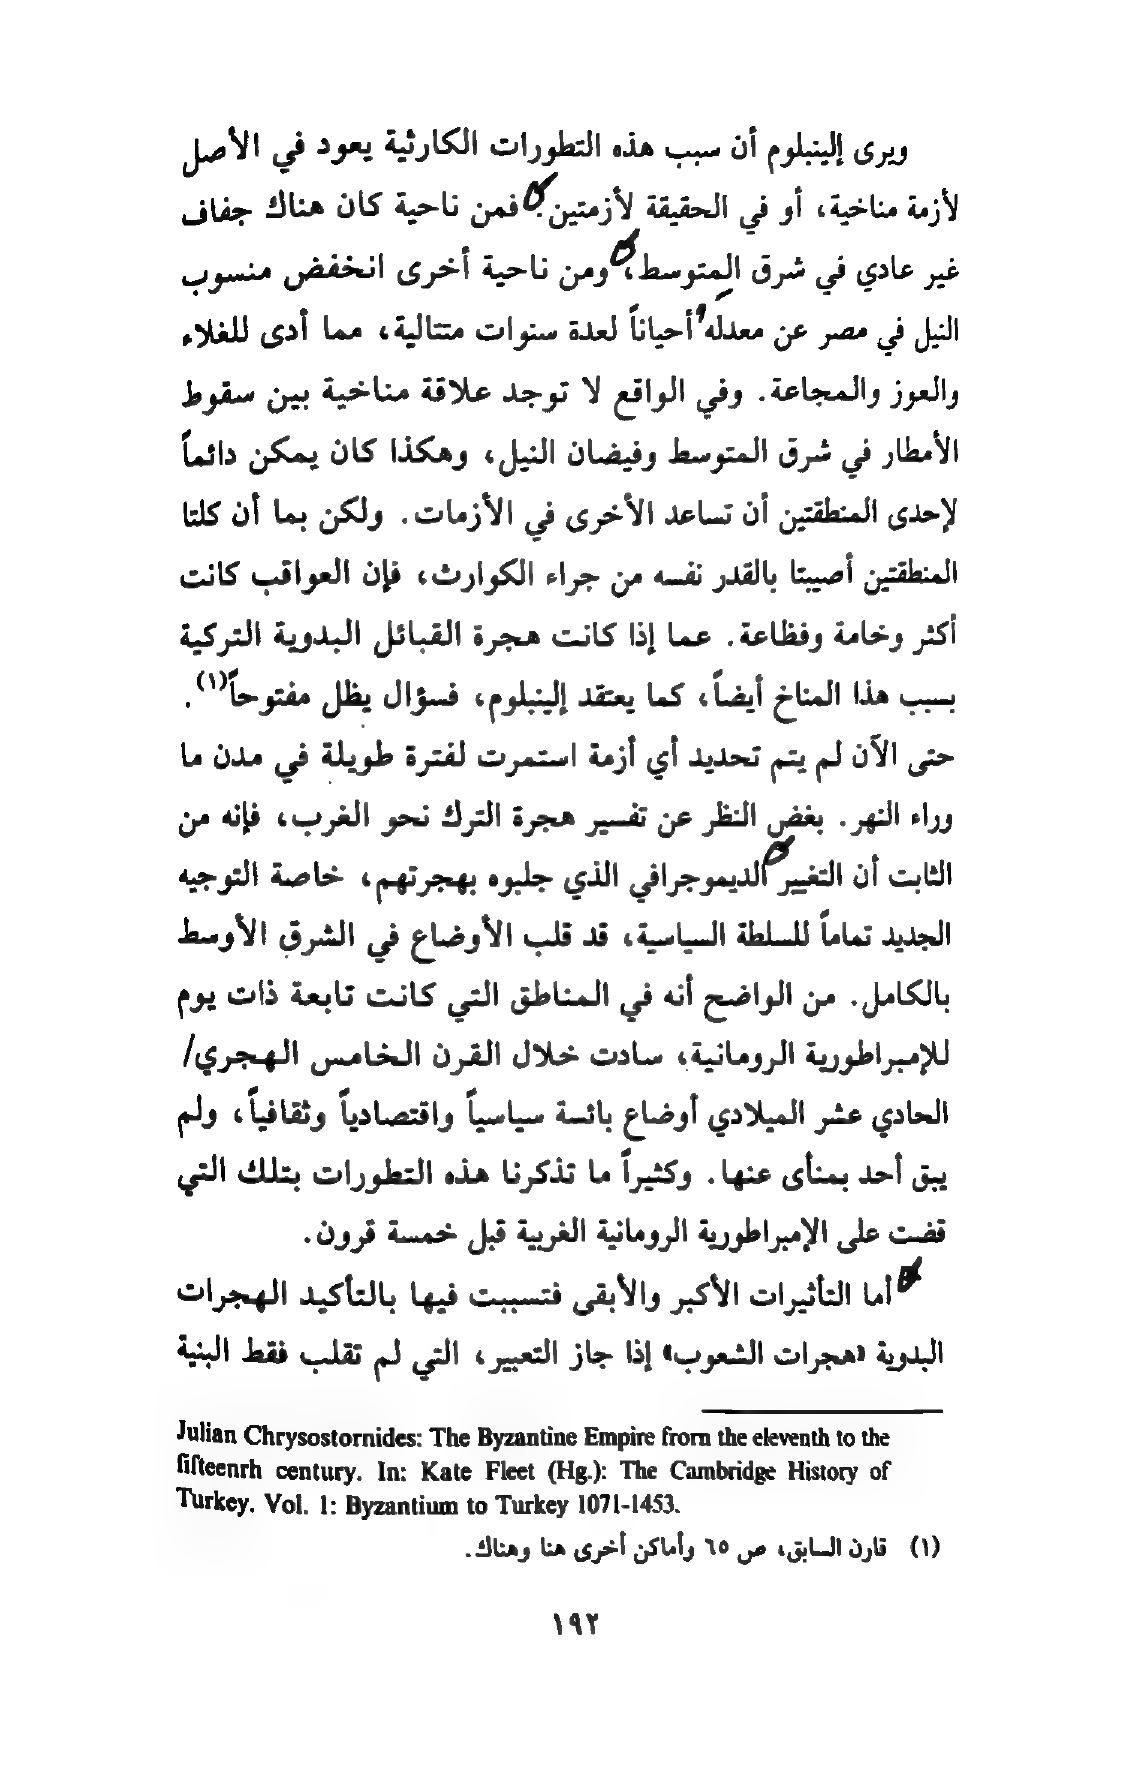 ويرى إلينبلوم أن سبب هذه التطورات الكارثية يعود في الأصل
لأزمة مناخية، أو في الحقيقة لأزمتين. فمن ناحية كان هناك جفاف
غير عادي في شرق المتوسط، ومن ناحية أخرى انخفض منسوب
النيل في مصر عن معدله أحياناً لعدة سنوات متتالية، مما أدى للغلاء
والعوز والمجاعة. وفي الواقع لا توجد علاقة مناخية بين سقوط
الأمطار في شرق المتوسط وفيضان النيل، وهكذا كان يمكن دائماً
لإحدى المنطقتين أن تساعد الأخرى في الأزمات. ولكن بما أن كلتا
المنطقتين أصيبتا بالقدر نفسه من جراء الكوارث، فإن العواقب كانت
أكثر وخامة وفظاعة. عما إذا كانت هجرة القبائل البدوية التركية
بسبب هذا المناخ أيضاً، كما يعتقد إلينبلوم، فسؤال يظل مفتوحاً(١).
حتى الآن لم يتم تحديد أي أزمة استمرت لفترة طويلة في مدن ما
وراء النهر. بغض النظر عن تفسير هجرة الترك نحو الغرب، فإنه من
الثابت أن التغيير الديموجرافي الذي جلبوه بهجرتهم، خاصة التوجيه
الجديد تماماً للسلطة السياسية، قد قلب الأوضاع في الشرق الأوسط
بالكامل. من الواضح أنه في المناطق التي كانت تابعة ذات يوم
للإمبراطورية الرومانية، سادت خلال القرن الخامس الهجري/
الحادي عشر الميلادي أوضاع بائسة سياسياً واقتصادياً وثقافياً، ولم
يبق أحد بمنأى عنها. وكثيراً ما تذكرنا هذه التطورات بتلك التي
قضت على الإمبراطورية الرومانية الغربية قبل خمسة قرون.
أما التأثيرات الأكبر والأبقى فتسببت فيها بالتأكيد الهجرات
البدوية «هجرات الشعوب» إذا جاز التعبير، التي لم تقلب فقط البنية
Julian Chrysostornides: The Byzantine Empire from the eleventh to the
fifteenrh century. In: Kate Fleet (Hg.): The Cambridge History of
Turkey. Vol. 1: Byzantium to Turkey 1071-1453.
(١) قارن السابق، ص ٦٥ وأماكن أخرى هنا وهناك.
١٩٢